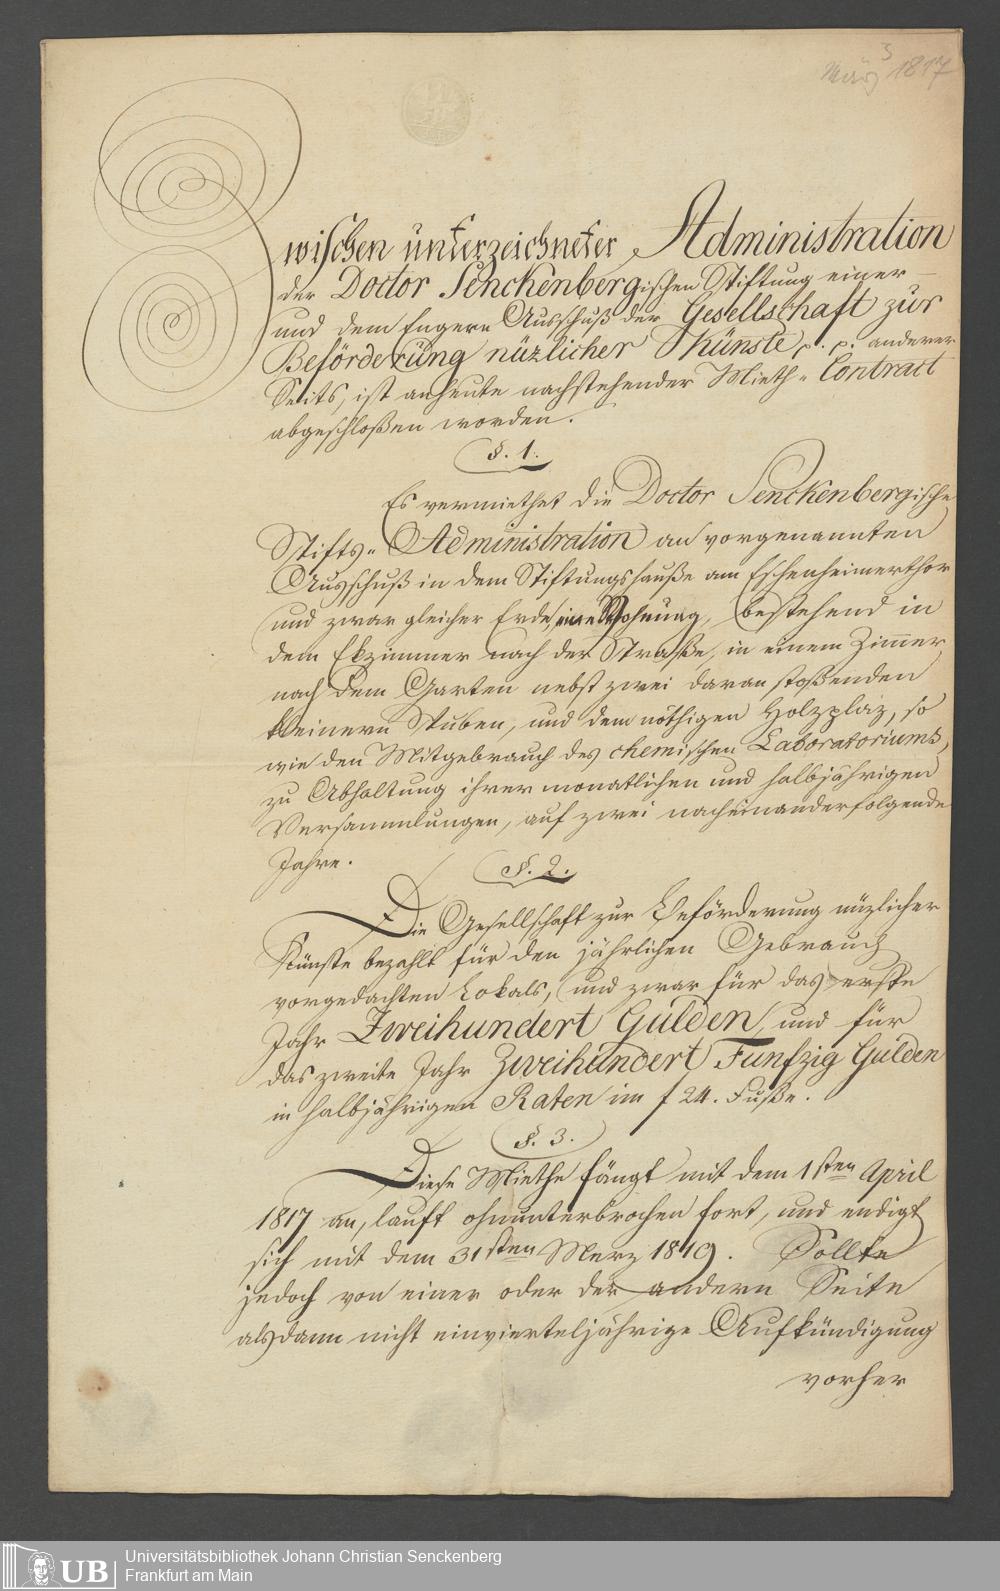 3
März 1817
Zwischen unterzeichneter Administration
der Doctor Senckenbergischen Stiftung einer
und dem Engern Ausschuß der Gesellschaft zur
Beförderung nüzlicher Künste p. p. anderer
Seits, ist anheute nachstehender Mieth-Contract
abgeschloßen worden.
§. 1.
Es vermiethet die Doctor Senckenbergische
Stifts-Administration an vorgenannten
Ausschuß in dem Stiftungshauße am Eschenheimerthor
und zwar gleicher Erde, eine Wohnung, bestehend in
dem Ekzimmer nach der Straße, in einem Zimmer
nach dem Garten nebst zwei daran stoßenden
kleinern Stuben, und dem nöthigen Holzplaz, so
wie den Mitgebrauch des chemischen Laboratoriums,
zu Abhaltung ihrer monatlichen und halbjährigen
Versammlungen, auf zwei nacheinanderfolgende
Jahre.
§. 2.
Die Gesellschaft zur Beförderung nüzlicher
Künste bezahlt für den jährlichen Gebrauch
vorgedachten Lokals, und zwar für das erste
Jahr Zweihundert Gulden, und für
das zweite Jahr Zweihundert Funfzig Gulden
in halbjährigen Raten im f 24. Fuße.
§. 3.
Diese Miethe fängt mit dem 1sten April
1817 an, lauft ohnunterbrochen fort, und endigt
sich mit dem 31sten Merz 1819. Sollte
jedoch von einer oder der andern Seite
alsdann nicht einvierteljährige Aufkündigung
vorher
UB
Universitätsbibliothek Johann Christian Senckenberg
Frankfurt am Main